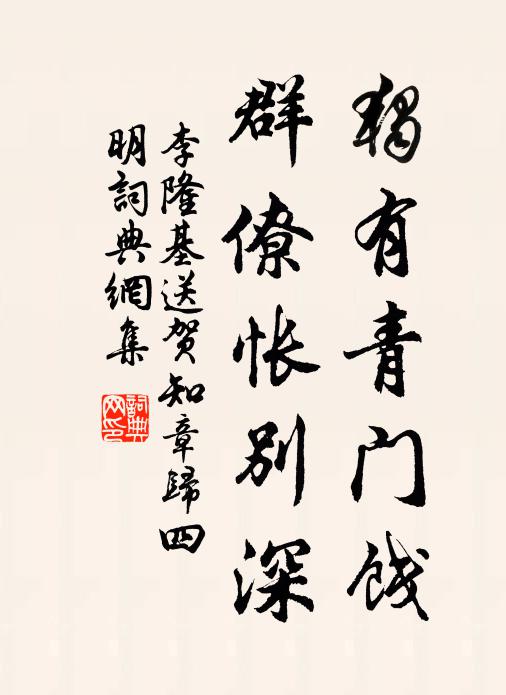 獨有青门饯
群僚怅别深
李隆基送賀知章歸四
明詞典網集
詞典
网印